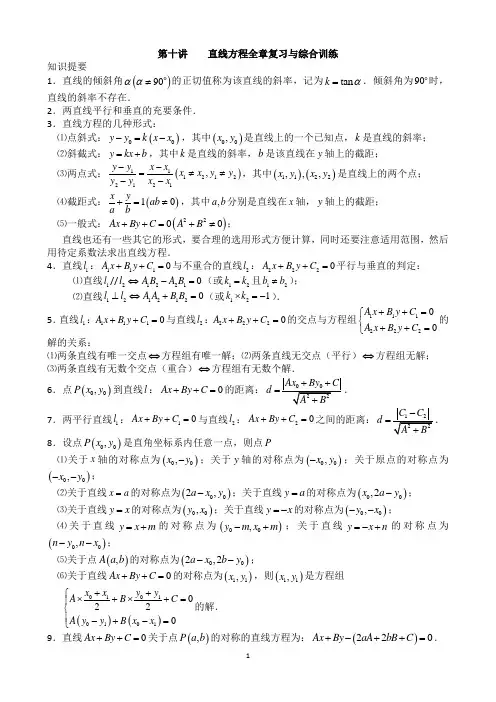 第十讲 直线方程全章复习与综合训练
知识提要
1．直线的倾斜角α(α≠90°)的正切值称为该直线的斜率，记为k=tanα．倾斜角为90°时，
直线的斜率不存在．
2．两直线平行和垂直的充要条件．
3．直线方程的几种形式：
⑴点斜式：y−y₀=k(x−x₀)，其中(x₀,y₀)是直线上的一个已知点，k是直线的斜率；
⑵斜截式：y=kx+b，其中k是直线的斜率，b是该直线在y轴上的截距；
⑶两点式：(y−y₁)/(y₂−y₁)=(x−x₁)/(x₂−x₁)(x₁≠x₂,y₁≠y₂)，其中(x₁,y₁),(x₂,y₂)是直线上的两个点；
⑷截距式：x/a+y/b=1(ab≠0)，其中a,b分别是直线在x轴，y轴上的截距；
⑸一般式：Ax+By+C=0(A²+B²≠0)；
直线也还有一些其它的形式，要合理的选用形式方便计算，同时还要注意适用范围，然后
用待定系数法求出直线方程．
4．直线l₁：A₁x+B₁y+C₁=0与不重合的直线l₂：A₂x+B₂y+C₂=0平行与垂直的判定：
⑴直线l₁//l₂⇔A₁B₂−A₂B₁=0（或k₁=k₂且b₁≠b₂）；
⑵直线l₁⊥l₂⇔A₁A₂+B₁B₂=0（或k₁×k₂=−1）．
5．直线l₁：A₁x+B₁y+C₁=0与直线l₂：A₂x+B₂y+C₂=0的交点与方程组{A₁x+B₁y+C₁=0 A₂x+B₂y+C₂=0的
解的关系：
⑴两条直线有唯一交点⇔方程组有唯一解；⑵两条直线无交点（平行）⇔方程组无解；
⑶两条直线有无数个交点（重合）⇔方程组有无数个解．
6．点P(x₀,y₀)到直线l：Ax+By+C=0的距离：d=|Ax₀+By₀+C|/√(A²+B²)．
7．两平行直线l₁：Ax+By+C₁=0与直线l₂：Ax+By+C₂=0之间的距离：d=|C₁−C₂|/√(A²+B²)．
8．设点P(x₀,y₀)是直角坐标系内任意一点，则点P
⑴关于x轴的对称点为(x₀,−y₀)；关于y轴的对称点为(−x₀,y₀)；关于原点的对称点为
(−x₀,−y₀)；
⑵关于直线x=a的对称点为(2a−x₀,y₀)；关于直线y=a的对称点为(x₀,2a−y₀)
⑶关于直线y=x的对称点为(y₀,x₀)；关于直线y=−x的对称点为(−y₀,−x₀)；
⑷关于直线y=x+m的对称点为(y₀−m,x₀+m)；关于直线y=−x+n的对称点为
(n−y₀,n−x₀)；
⑸关于点A(a,b)的对称点为(2a−x₀,2b−y₀)；
⑹关于直线Ax+By+C=0的对称点为(x₁,y₁)，则(x₁,y₁)是方程组
{A×(x₀+x₁)/2+B×(y₀+y₁)/2+C=0
A(y₀−y₁)+B(x₁−x₀)=0的解．
9．直线Ax+By+C=0关于点P(a,b)的对称的直线方程为：Ax+By−(2aA+2bB+C)=0．
1